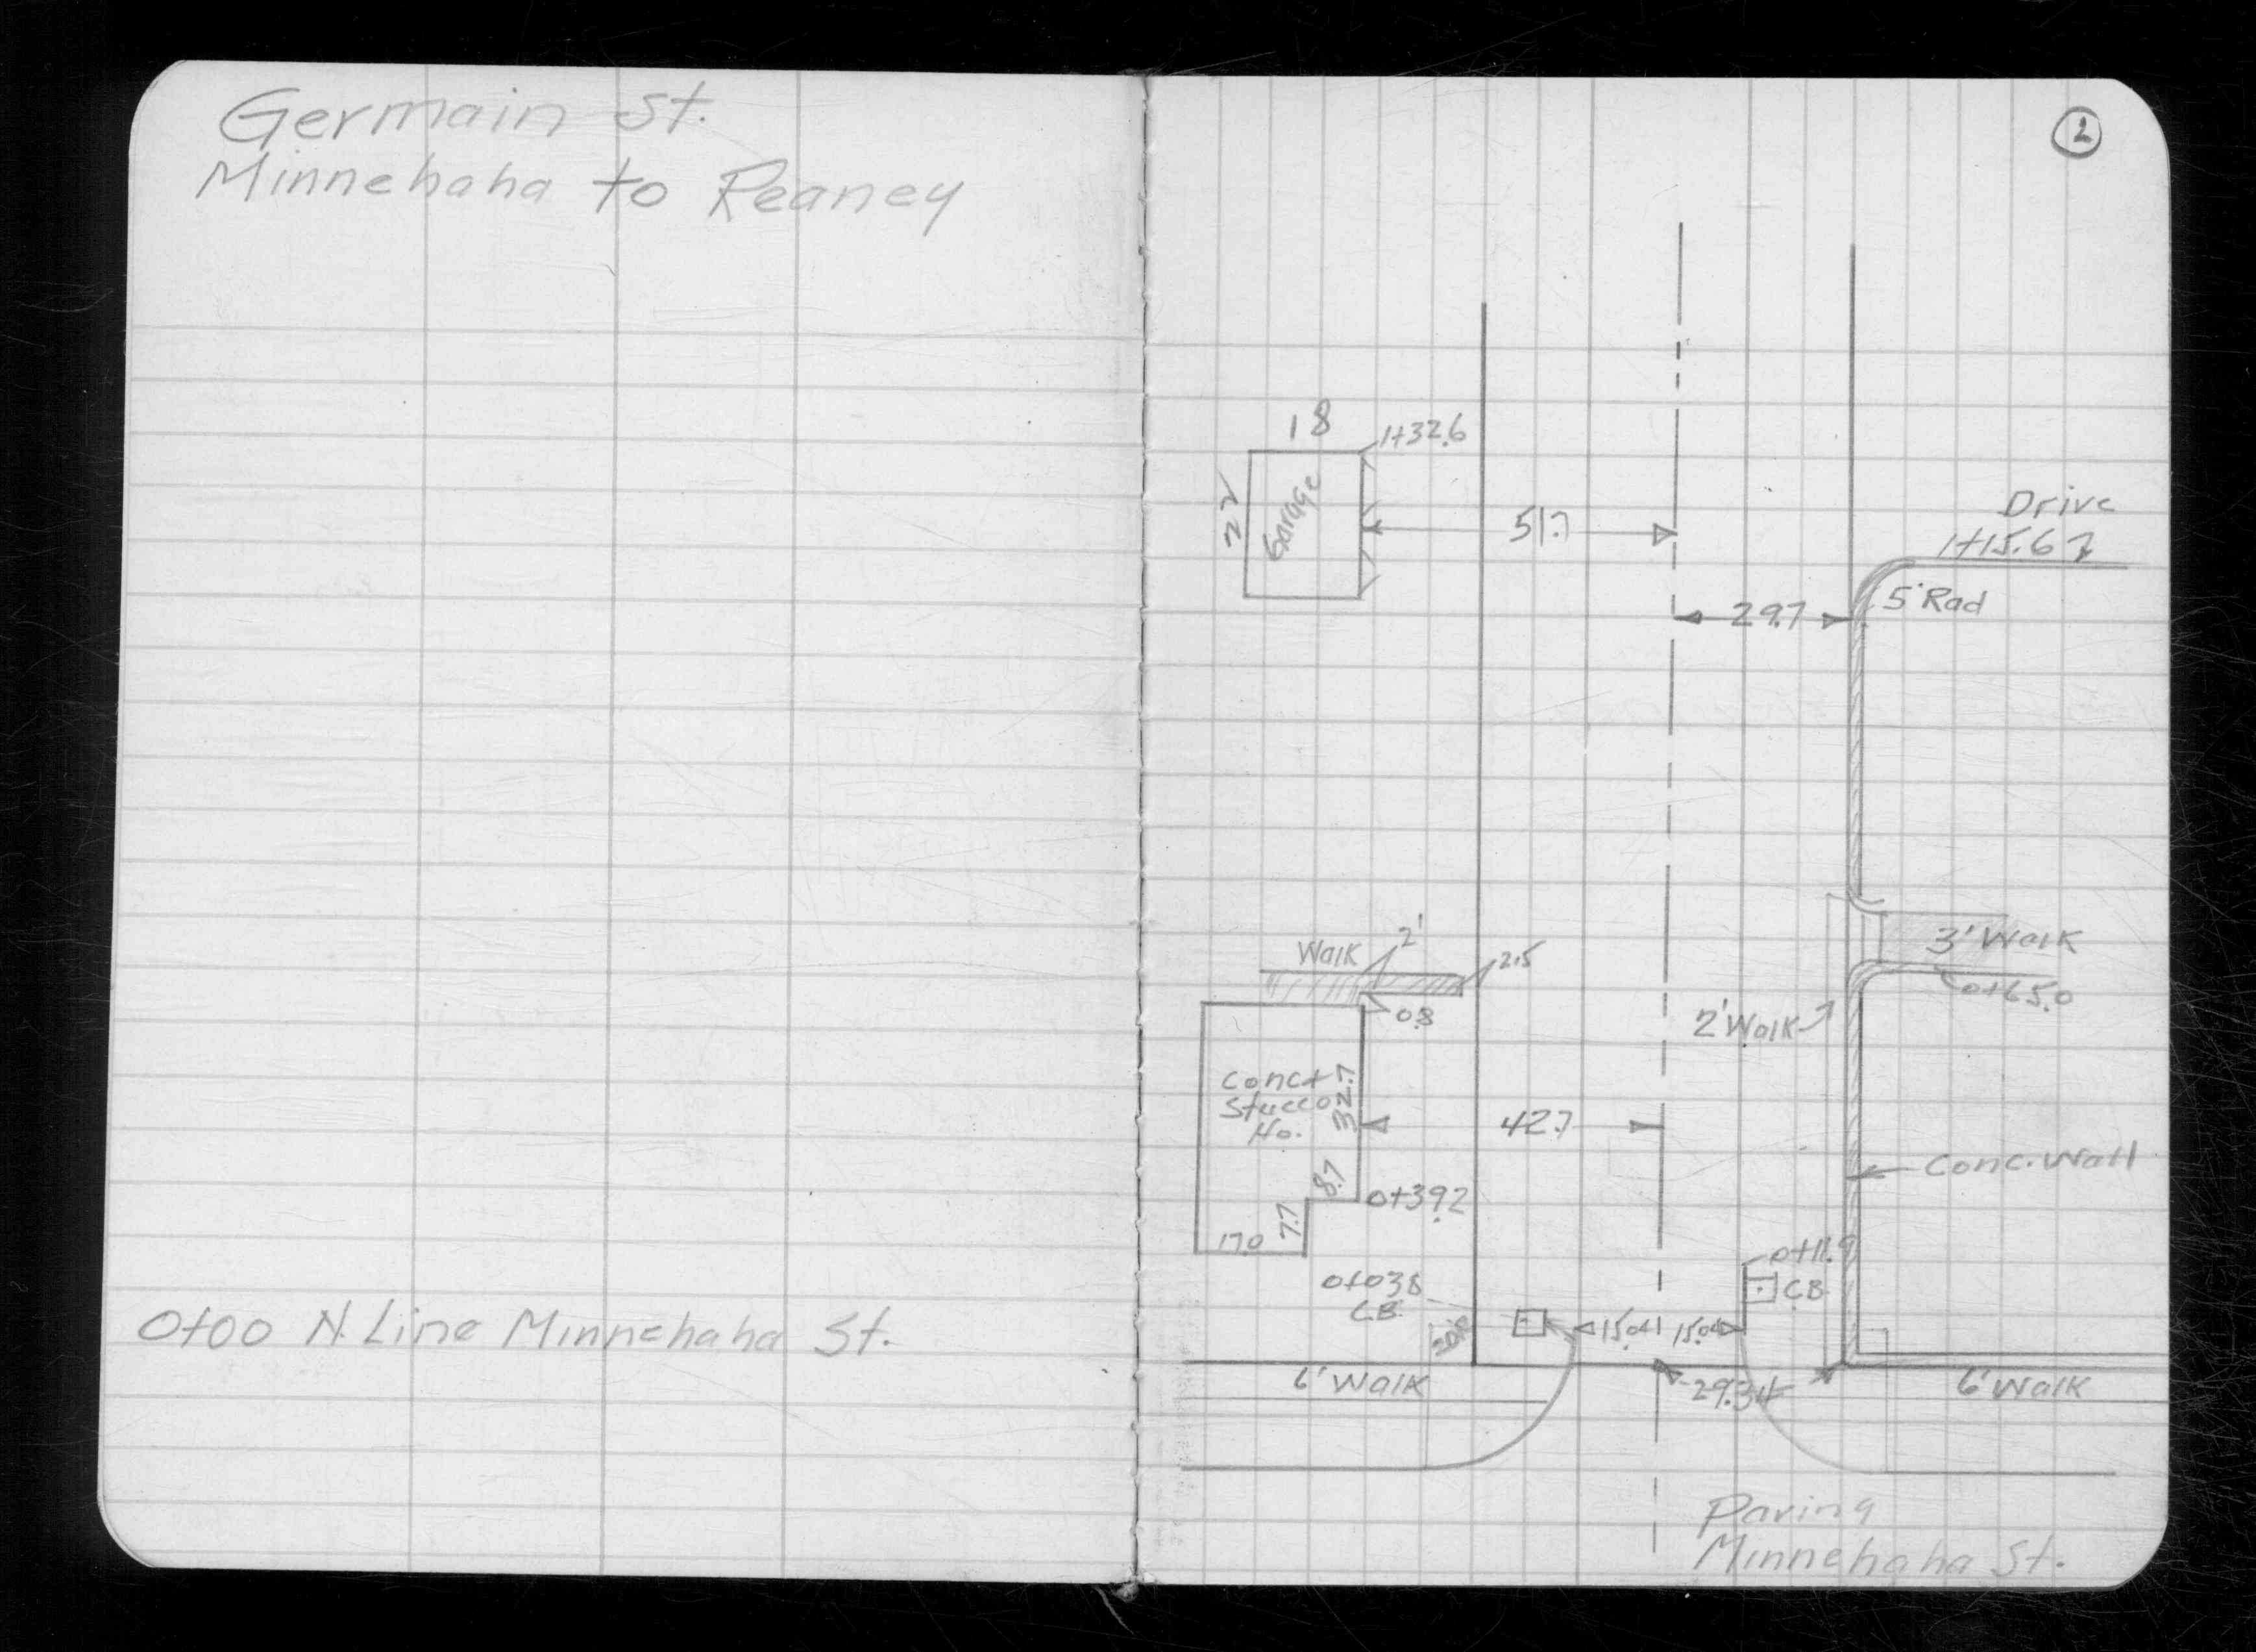 Germain St.
Minnehaha to Reaney
0+00 N. Line Minnehaha St.
2
18
1+32.6
22
Garage
51.7
Drive
1+15.6
5' Rad
29.7
Walk
2'
2.5
0.8
3' Walk
0+65.0
2' Walk
Conc+
Stucco
Ho.
32.7
42.7
Conc. Wall
8.7
0+39.2
7.7
17.0
0+11.9
CB
0+03.8
C.B.
15.04
15.04
29.34
6' Walk
6' Walk
Paving
Minnehaha St.